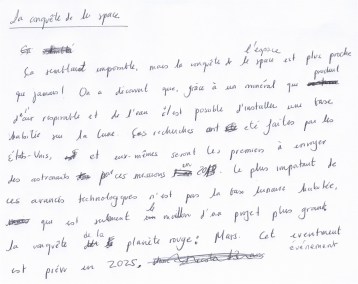 La conquête de le space
l'espace
Ça semblant imposible, mais la conquête de le space est plus proche
que jamais! On a découvert que, grâce à un minéral que produit
d'air respirable et de l'eau c'est posible d'installer une base
habitée sur la lune. Ces recherches ont été faites par les
États-Unis, et eux-mêmes seront les premiers à envoyer
des astronauts ces missions en. Le plus impotant de
ces avancés technologiques n'est pas la base lunaire habitée,
que est seulement le d'un projet plus grand:
la conquête de la planète rouge: Mars. Cet eventment
événement
est piéve en 2025.